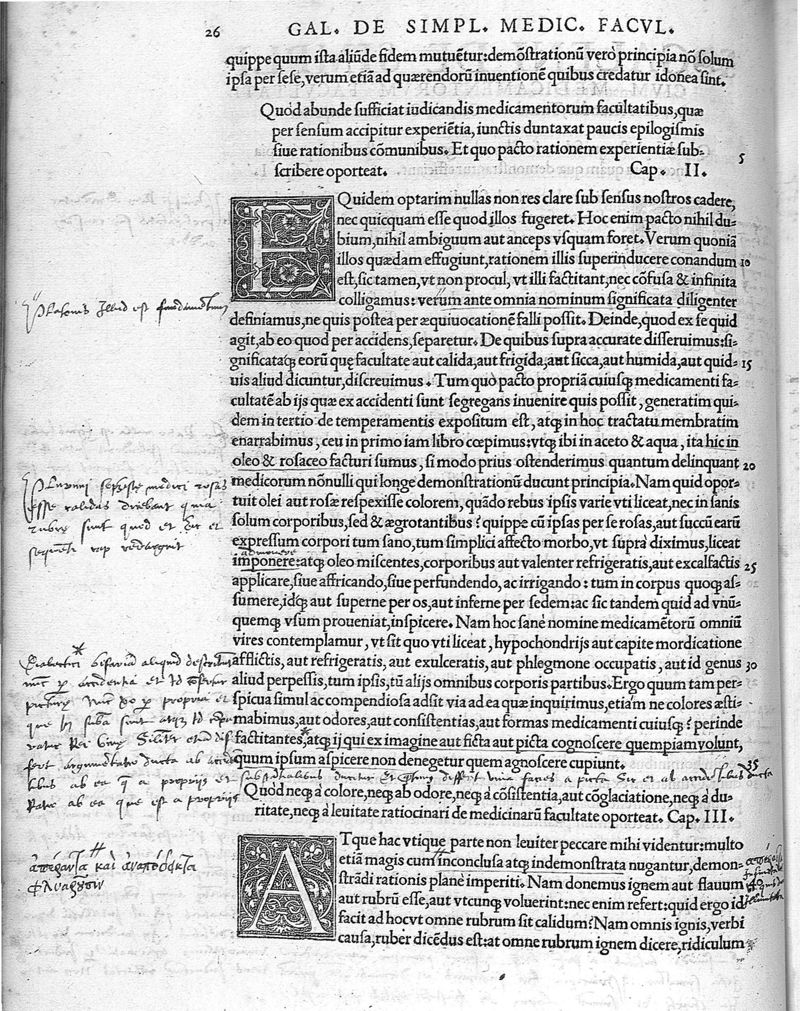 26
GAL. DE SIMPL. MEDIC. FACVL.
quippe quum ista aliũde fidem mutuẽtur:demõstrationũ verò principia nõ solum
ipsa per sese,verum etiã ad quærendorũ inuentionẽ quibus credatur idonea sint.
Quòd abunde sufficiat iudicandis medicamentorum facultatibus,quæ
per sensum accipitur experiẽtia, iunctis duntaxat paucis epilogismis
siue rationibus cõmunibus. Et quo pacto rationem experientiæ sub-
5
scribere oporteat. Cap. II.
EQuidem optarim nullas non res clare sub sensus nostros cadere,
nec quicquam esse quod illos fugeret. Hoc enim pacto nihil du-
bium,nihil ambiguum aut anceps vsquam foret. Verum quoniã
illos quædam effugiunt,rationem illis superinducere conandum 10
est,sic tamen,vt non procul,vt illi factitant,nec cõfusa & infinita
colligamus:verùm ante omnia nominum significata diligenter
definiamus,ne quis postea per æquiuocationẽ falli possit. Deinde,quod ex se quid
agit,ab eo quod per accidens,separetur. De quibus supra accurate disseruimus:si-
gnificataq́; eorũ quę facultate aut calida,aut frigida,aut sicca,aut humida,aut quid- 15
uis aliud dicuntur,discreuimus. Tum quò pacto propriã cuiusq́; medicamenti fa-
cultatẽ ab ijs quæ ex accidenti sunt segregans inuenire quis possit,generatim qui-
dem in tertio de temperamentis expositum est, atq́; in hoc tractatu membratim
enarrabimus, ceu in primo iam libro cœpimus:vtq́; ibi in aceto & aqua, ita hic in
oleo & rosaceo facturi sumus, si modo prius ostenderimus quantum delinquant 20
medicorum nõnulli qui longe demonstrationũ ducunt principia. Nam quid opor-
tuit olei aut rosæ respexisse colorem, quãdo rebus ipsis varie vti liceat,nec in sanis
solum corporibus,sed & ægrotantibus? quippe cũ ipsas per se rosas,aut succũ earũ
expressum corpori tum sano,tum simplici affecto morbo,vt suprà diximus,liceat
admouere
imponere:atq́; oleo miscentes,corporibus aut valenter refrigeratis,aut excalfactis 25
applicare,siue affricando,siue perfundendo, ac irrigando : tum in corpus quoq́; as-
sumere,idq́; aut superne per os,aut inferne per sedem:ac sic tandem quid ad vnũ-
quemq́; vsum proueniat,inspicere. Nam hoc sanè nomine medicamẽtorũ omniũ
vires contemplamur, vt sit quo vti liceat, hypochondrijs aut capite mordicatione
afflictis, aut refrigeratis, aut exulceratis, aut phlegmone occupatis, aut id genus 30
aliud perpessis,tum ipsis,tũ alijs omnibus corporis partibus. Ergo quum tam per-
spicua simul ac compendiosa adsit via ad ea quæ inquirimus,etiam ne colores æsti-
mabimus,aut odores,aut consistentias,aut formas medicamenti cuiusq́; ? perinde
factitantes,atq́; ij qui ex imagine aut ficta aut picta cognoscere quempiam volunt,
quum ipsum aspicere non denegetur quem agnoscere cupiunt. 35
Quòd neq́; à colore,neq́; ab odore,neq́; à cõsistentia,aut cõglaciatione,neq́; à du-
ritate,neq́; à leuitate ratiocinari de medicinarũ facultate oporteat. Cap. III.
ATque hac vtique parte non leuiter peccare mihi videntur:multo
etiã magis cum inconclusa atq́; indemonstrata nugantur, demon-
strãdi rationis planè imperiti. Nam donemus ignem aut flauum
aut rubrũ esse,aut vtcunq́; voluerint:nec enim refert:quid ergo id
facit ad hoc vt omne rubrum sit calidum? Nam omnis ignis,verbi
causa,ruber dicẽdus est:at omne rubrum ignem dicere,ridiculum
Platonis illud est fundamentum
Plurimi sepissime medici rosas
esse calidas dicebant quia
rubrę sunt quod et hic et
ἀπέραντα καὶ ἀναπόδεικτα